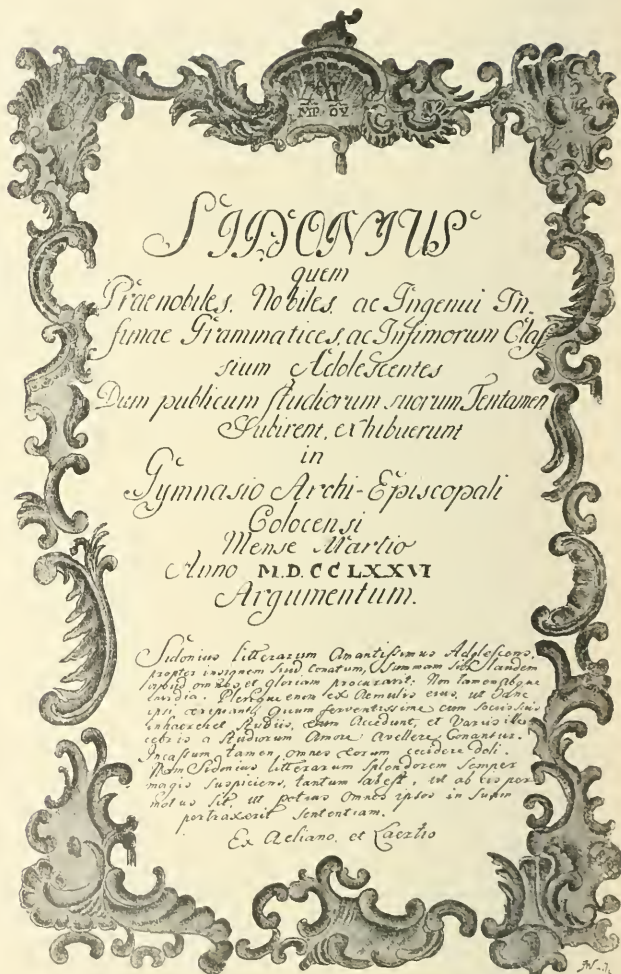 MP. OV.
SIDONIUS
quem
Praenobiles, Nobiles, ac Ingenui In-
fimae Grammatices, ac Infimorum Clas-
sium Adolescentes
Dum publicum studiorum suorum Tentamen
Subirent, exhibuerunt
in
Gymnasio Archi-Episcopali
Colocensi
Mense Martio
Anno M.D.CCLXXVI
Argumentum.
Sidonius litterarum Amantissimus Adolescens,
propter insignem suum conatum, summam sibi laudem
apud omnes, et gloriam procurarit. Non tamen absque
invidia. Plerique enim ex Aemulis ejus, ut hanc
ipsi eripiant, quum ferventissime cum sociis suis
inhaereret studiis, eum Accedunt, et Variis illec-
ebris a studiorum Amore Avellere Conantur.
Incassum tamen, omnes eorum cecidere doli.
Nam Sidonius litterarum splendorem semper
magis suspiciens, tantum abest, ut ab eis per
motus sit, ut potius omnes ipsos in suam
pertraxerit sententiam.
Ex Aeliano, et Laertio